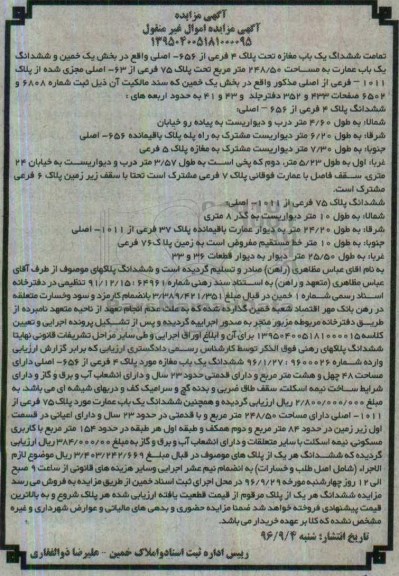 آگهی مزایده
آگهی مزایده اموال غیر منقول
۱۳۹۵۰۴۰۰۵۱۸۱۰۰۰۰۹۵
تمامت ششدانگ یک باب مغازه تحت پلاک ۴ فرعی از ۶۵۶- اصلی واقع در بخش یک خمین و ششدانگ
یک باب عمارت به مساحت ۲۴۸/۵۰ متر مربع تحت پلاک ۷۵ فرعی از ۶۳- اصلی مجزی شده از پلاک
۱۰۱۱ – فرعی از اصلی مذکور واقع در بخش یک خمین که سند مالکیت آن ذیل ثبت شماره ۶۸۰۸ و
۶۵۰۲ صفحات ۴۳۳ و ۳۵۲ دفترجلد ۴۳ و ۴۱ به حدود اربعه های :
ششدانگ پلاک ۴ فرعی از ۶۵۶ – اصلی:
شمالا: به طول ۴/۶۰ متر درب و دیواریست به پیاده رو خیابان
شرقا: به طول ۶/۲۰ متر دیواریست مشترک به راه پله پلاک باقیمانده ۶۵۶- اصلی
جنوبا: به طول ۷/۳۰ متر دیواریست مشترک به مغازه پلاک ۵ فرعی
غربا: اول به طول ۵/۲۳ متر، دوم که پخی است به طول ۳/۵۷ متر درب و دیواریست به خیابان ۲۴
متری، سقف فاصل با عمارت فوقانی پلاک ۷ فرعی مشترک است تحتا با سقف زیر زمین پلاک ۶ فرعی
مشترک است.
ششدانگ پلاک ۷۵ فرعی از ۱۰۱۱- اصلی:
شمالا: به طول ۱۰ متر دیواریست به گذر ۸ متری
شرقا: به طول ۲۴/۲۰ متر به دیوار عمارت باقیمانده پلاک ۳۷ فرعی از ۱۰۱۱- اصلی
جنوبا: به طول ۱۰ متر خط مستقیم مفروض است به زمین پلاک ۷۶ فرعی
غربا: به طول ۲۵/۵۰ متر دیوار به دیوار قطعات ۳۶ و ۳۳
به نام آقای عباس مظاهری (راهن) صادر و تسلیم گردیده است و ششدانگ پلاکهای موصوف از طرف آقای
عباس مظاهری (متعهد و راهن) به استناد سند رهنی شماره ۶۴۹۶۱-۹۱/۱۲/۱۵ تنظیمی در دفترخانه
اسناد رسمی شماره ۱ خمین در قبال مبلغ ۳/۳۸۹/۴۲۱/۳۵۱ بانضمام کارمزد و سود وخسارت متعلقه
در رهن بانک مهر اقتصاد شعبه خمین گذارده شده که به علت عدم انجام تعهد از ناحیه متعهد نامبرده از
طریق دفترخانه مربوطه مزبور منجر به صدور اجراییه گردیده و پس از تشکیل پرونده اجرایی و تعیین
کلاسه ۱۳۹۵۰۴۰۰۵۱۸۱۰۰۰۰۱۵ برای آن و ابلاغ اوراق اجرایی و طی سایر مراحل تشریفات قانونی نهایتا
ششدانگ پلاکهای رهنی فوق الذکر توسط کارشناس رسمی دادگستری ارزیابی که برابر گزارش ارزیابی
وارده شماره ۶۰۰۰۰۲۶-۹۶/۱/۲۷ ششدانگ یک باب مغازه مورد پلاک ۴ فرعی از ۶۵۶- اصلی دارای
مساحت ۴۸ چهل و هشت متر مربع و دارای قدمتی حدود ۲۳ سال و دارای انشعاب آب و برق و گاز و دارای
شرایط ساخت نیمه اسکلت، سقف طاق ضربی و بدنه گچ و سرامیک کف و دربهای شیشه ای می باشد. به
مبلغ ۲/۸۰۰/۰۰۰/۰۰۰ ریال ارزیابی گردیده و همچنین ششدانگ یک باب عمارت مورد پلاک ۷۵ فرعی از
۱۰۱۱- اصلی دارای مساحت ۲۴۸/۵۰ متر مربع و با قدمتی در حدود ۲۳ سال و دارای اعیانی در قسمت
اول زیر زمین در حدود ۸۴ متر مربع و دوم همکف و طبقه اول هر طبقه در حدود ۱۵۴ متر مربع با کاربری
مسکونی، نیمه اسکلت با سایر متعلقات و دارای انشعاب آب و برق و گاز به مبلغ ۳۸۴/۰۰۰/۰۰ ریال ارزیابی
گردیده که ششدانگ هر یک از پلاک های موصوف در قبال مبلغ ۳/۴۰۳/۲۴۲/۶۶۹ ریال موضوع لازم
الاجراء (شامل اصل طلب و خسارات) به انضمام نیم عشر اجرایی وسایر هزینه های قانونی از ساعت ۹ صبح
الی ۱۲ روز چهارشنبه مورخه ۹۶/۹/۲۹ در محل اجرای ثبت اسناد خمین از طریق مزایده به فروش می رسد
مزایده ششدانگ هر یک از پلاک مرقوم از قیمت قطعیت یافته ارزیابی شده هر پلاک شروع و به بالاترین
قیمت پیشنهادی فروخته خواهد شد ضمنا مزایده حضوری و بدهی های مالیاتی و عوارض شهرداری و غیره
مشخص نشده که کلا بر عهده خریدار می باشد.
تاریخ انتشار: شنبه ۹۶/۹/۴
رییس اداره ثبت اسنادواملاک خمین – علیرضا ذوالفقاری